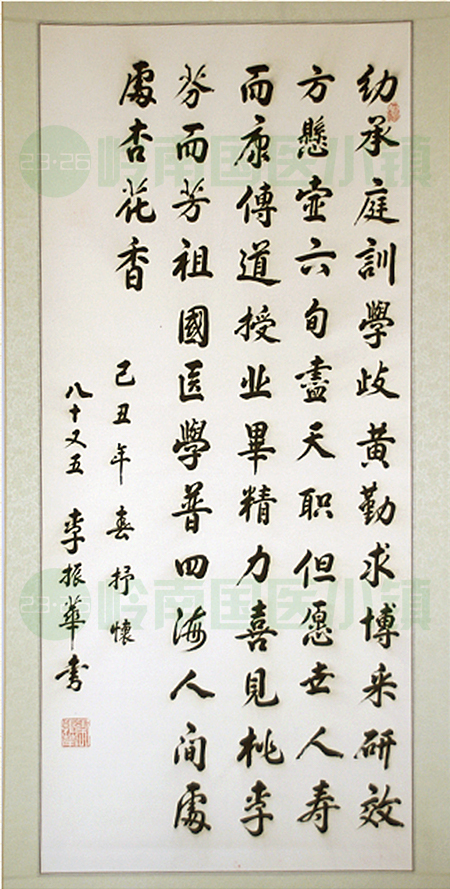 幼承庭訓學歧黄勤求博采研效
方懸壶六旬盡天职但愿世人寿
而康傳道授业畢精力喜見桃李
芬而芳祖國医學普四海人间處
處杏花香
己丑年春抒懷
八十又五 李振華书
23·26 岭南国医小镇
23·26 岭南国医小镇